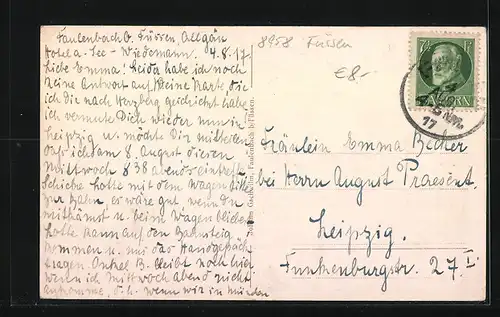 Faulenbach b. Füssen, Allgäu
Hotel a. See - Wiedemann. 4.8.17
Liebe Emma! Leider habe ich noch
keine Antwort auf meine Karte die
ich dir nach Herzberg geschickt habe
ich vermute Dich wieder nun in
Leipzig u. möchte Dir mitteilen
daß ich am 8. August diesen
Mittwoch 8 38 abends eintreffe
Schicke Lotte mit dem Wagen
zur Bahn, es wäre gut, wenn du
mitkämst u. beim Wagen bliebe
Lotte kann auf den Bahnsteig
kommen u. mir das Handgepäck
tragen. Onkel R. bleibt noch hier.
Wenn ich Mittwoch abend nicht
ankomme, d.h. wenn wir in München
8958 Füssen
€8.-
BAYERN
17
Fräulein Emma Becker
bei Herrn August Praesent.
Leipzig.
Funkenburgstr. 27 I.